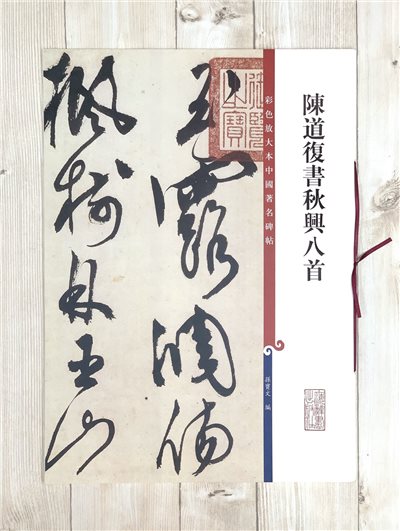 陳道復書秋興八首
彩色放大本中國著名碑帖
孫寶文 編
玉露凋傷
楓樹林巫山